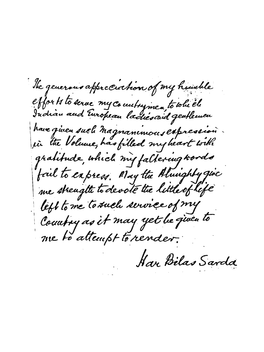 The generous appreciation of my humble
efforts to serve my countrymen, to which
Indian and European ladies and gentlemen
have given such magnanimous expression
in the Volume, has filled my heart with
gratitude which my faltering words
fail to express. May the Almighty give
me strength to devote the little of life
left to me to such service of my
Country as it may yet be given to
me to attempt to render.
Har Bilas Sarda